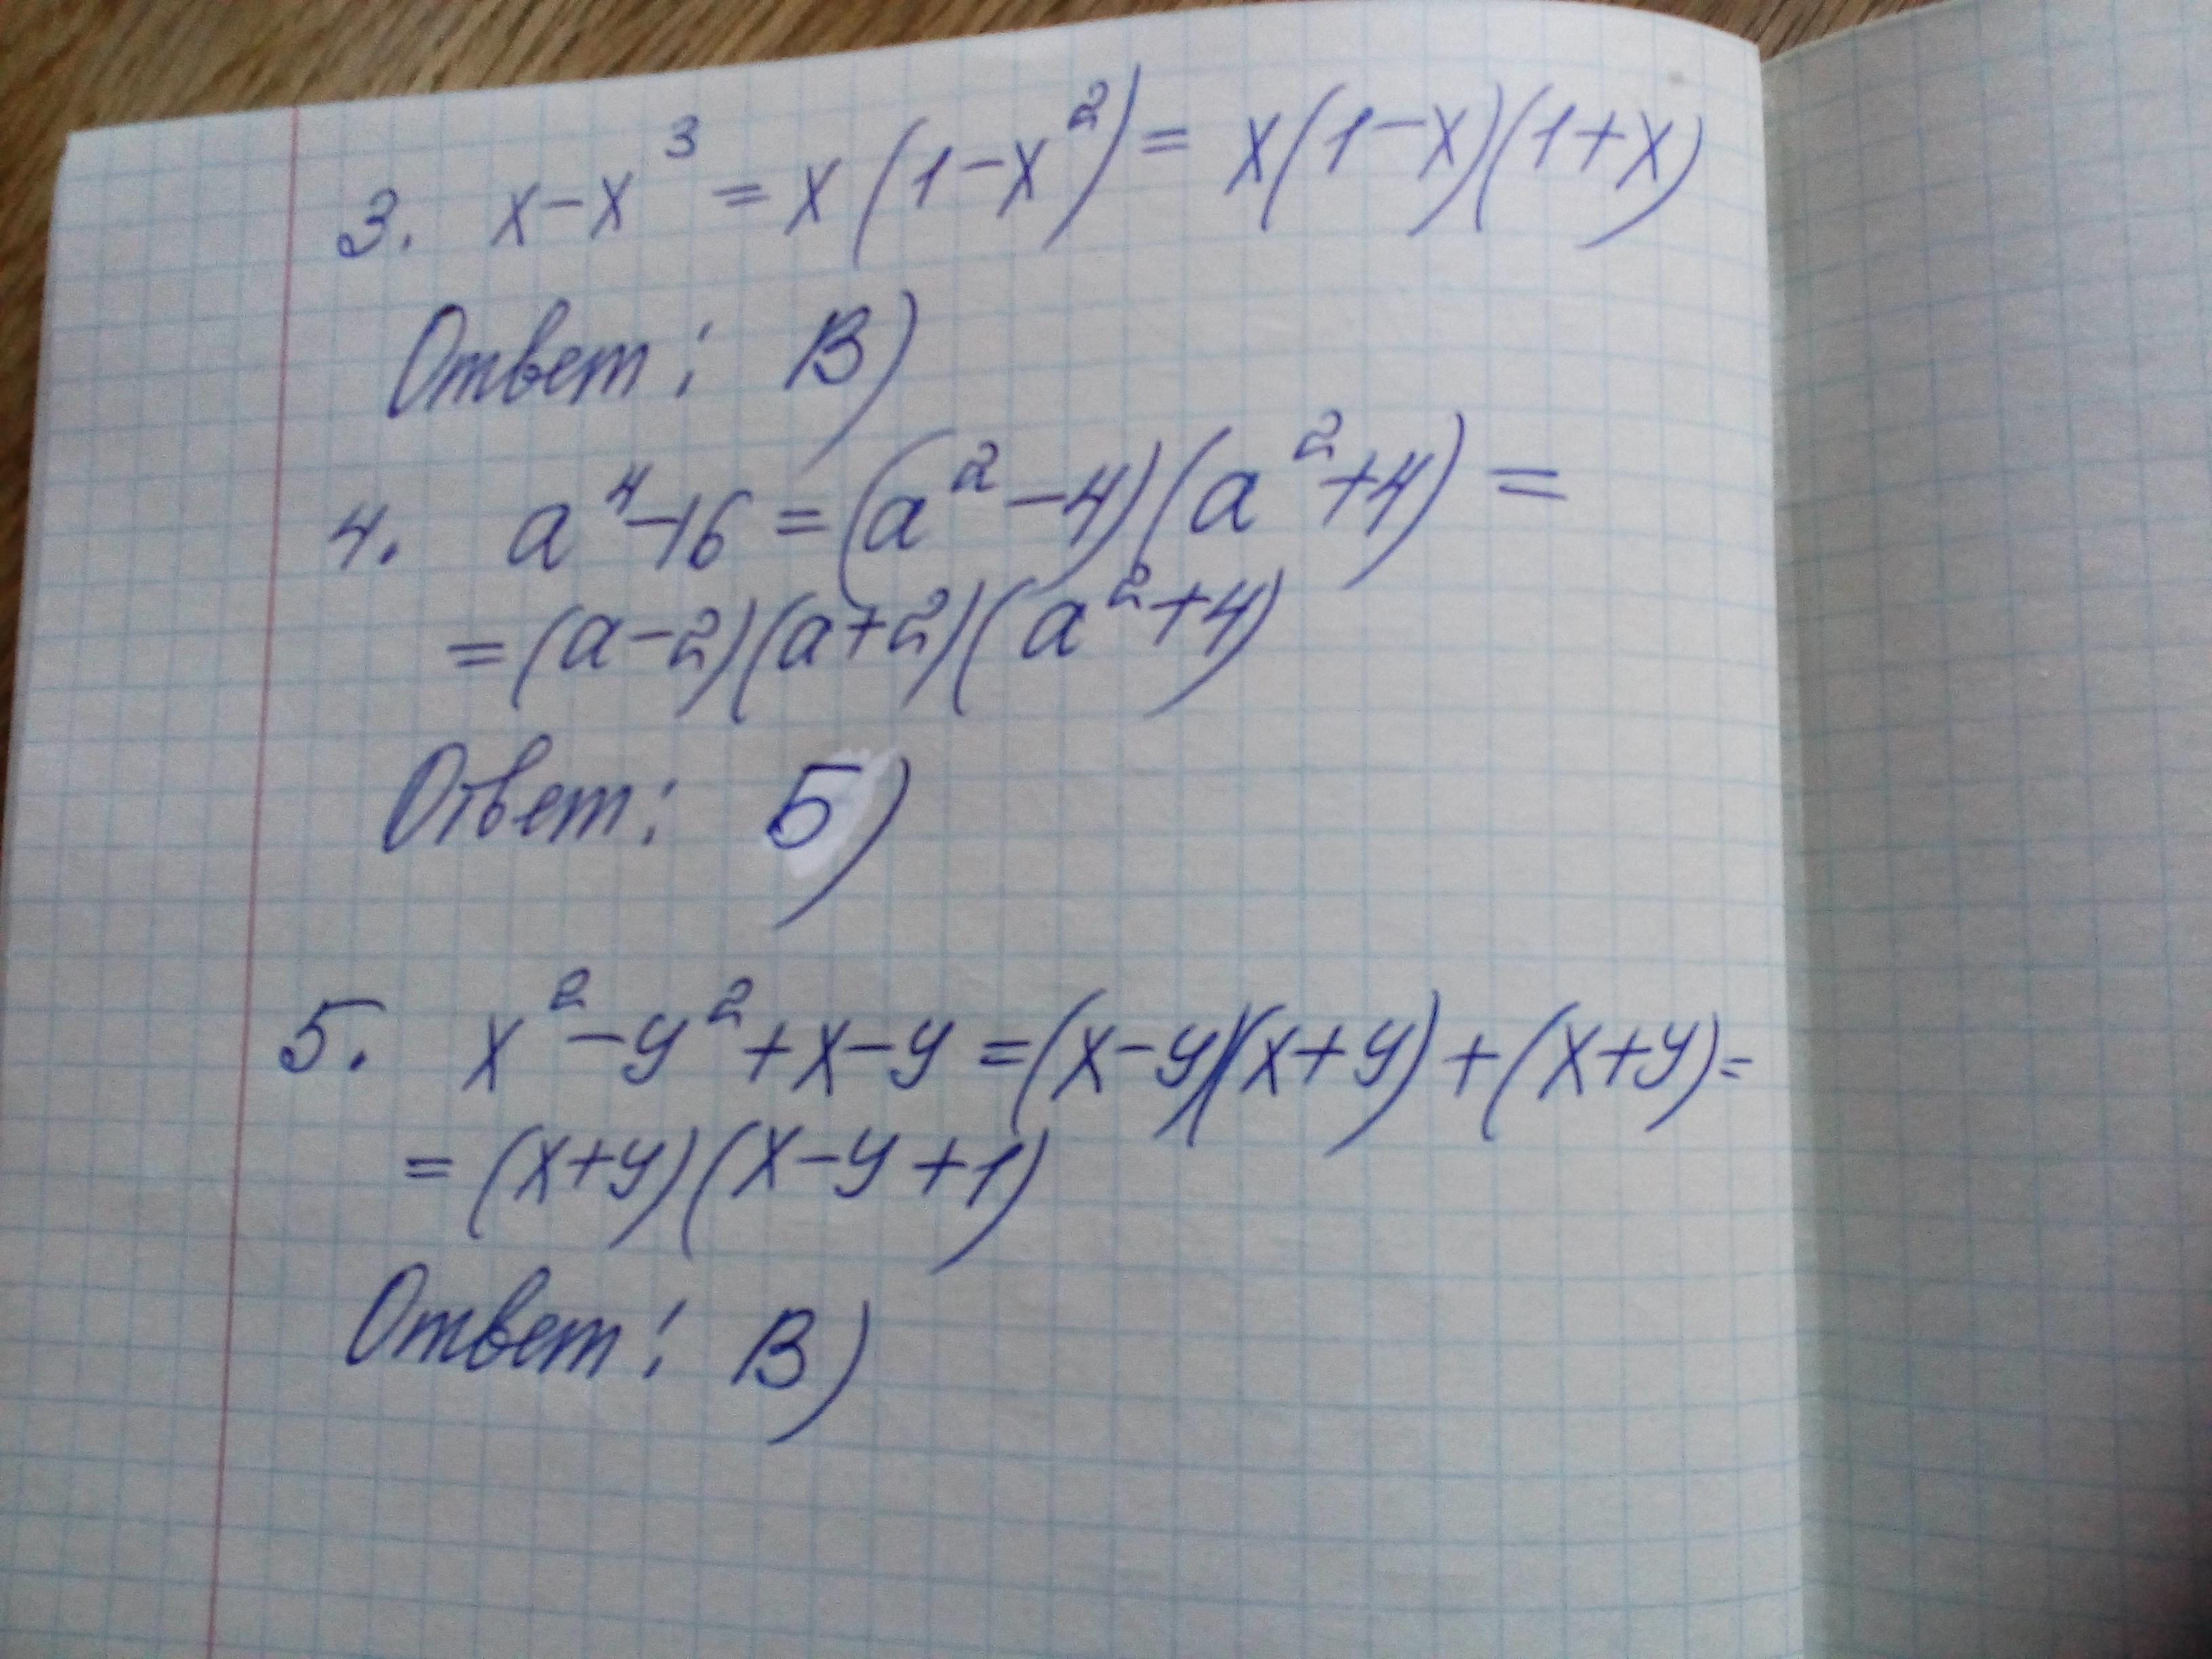 3. x-x³ = x(1-x²) = x(1-x)(1+x)
Ответ: В)
4. a⁴-16 = (a²-4)(a²+4) =
= (a-2)(a+2)(a²+4)
Ответ: Б)
5. x²-y²+x-y = (x-y)(x+y)+(x+y) =
= (x+y)(x-y+1)
Ответ: В)